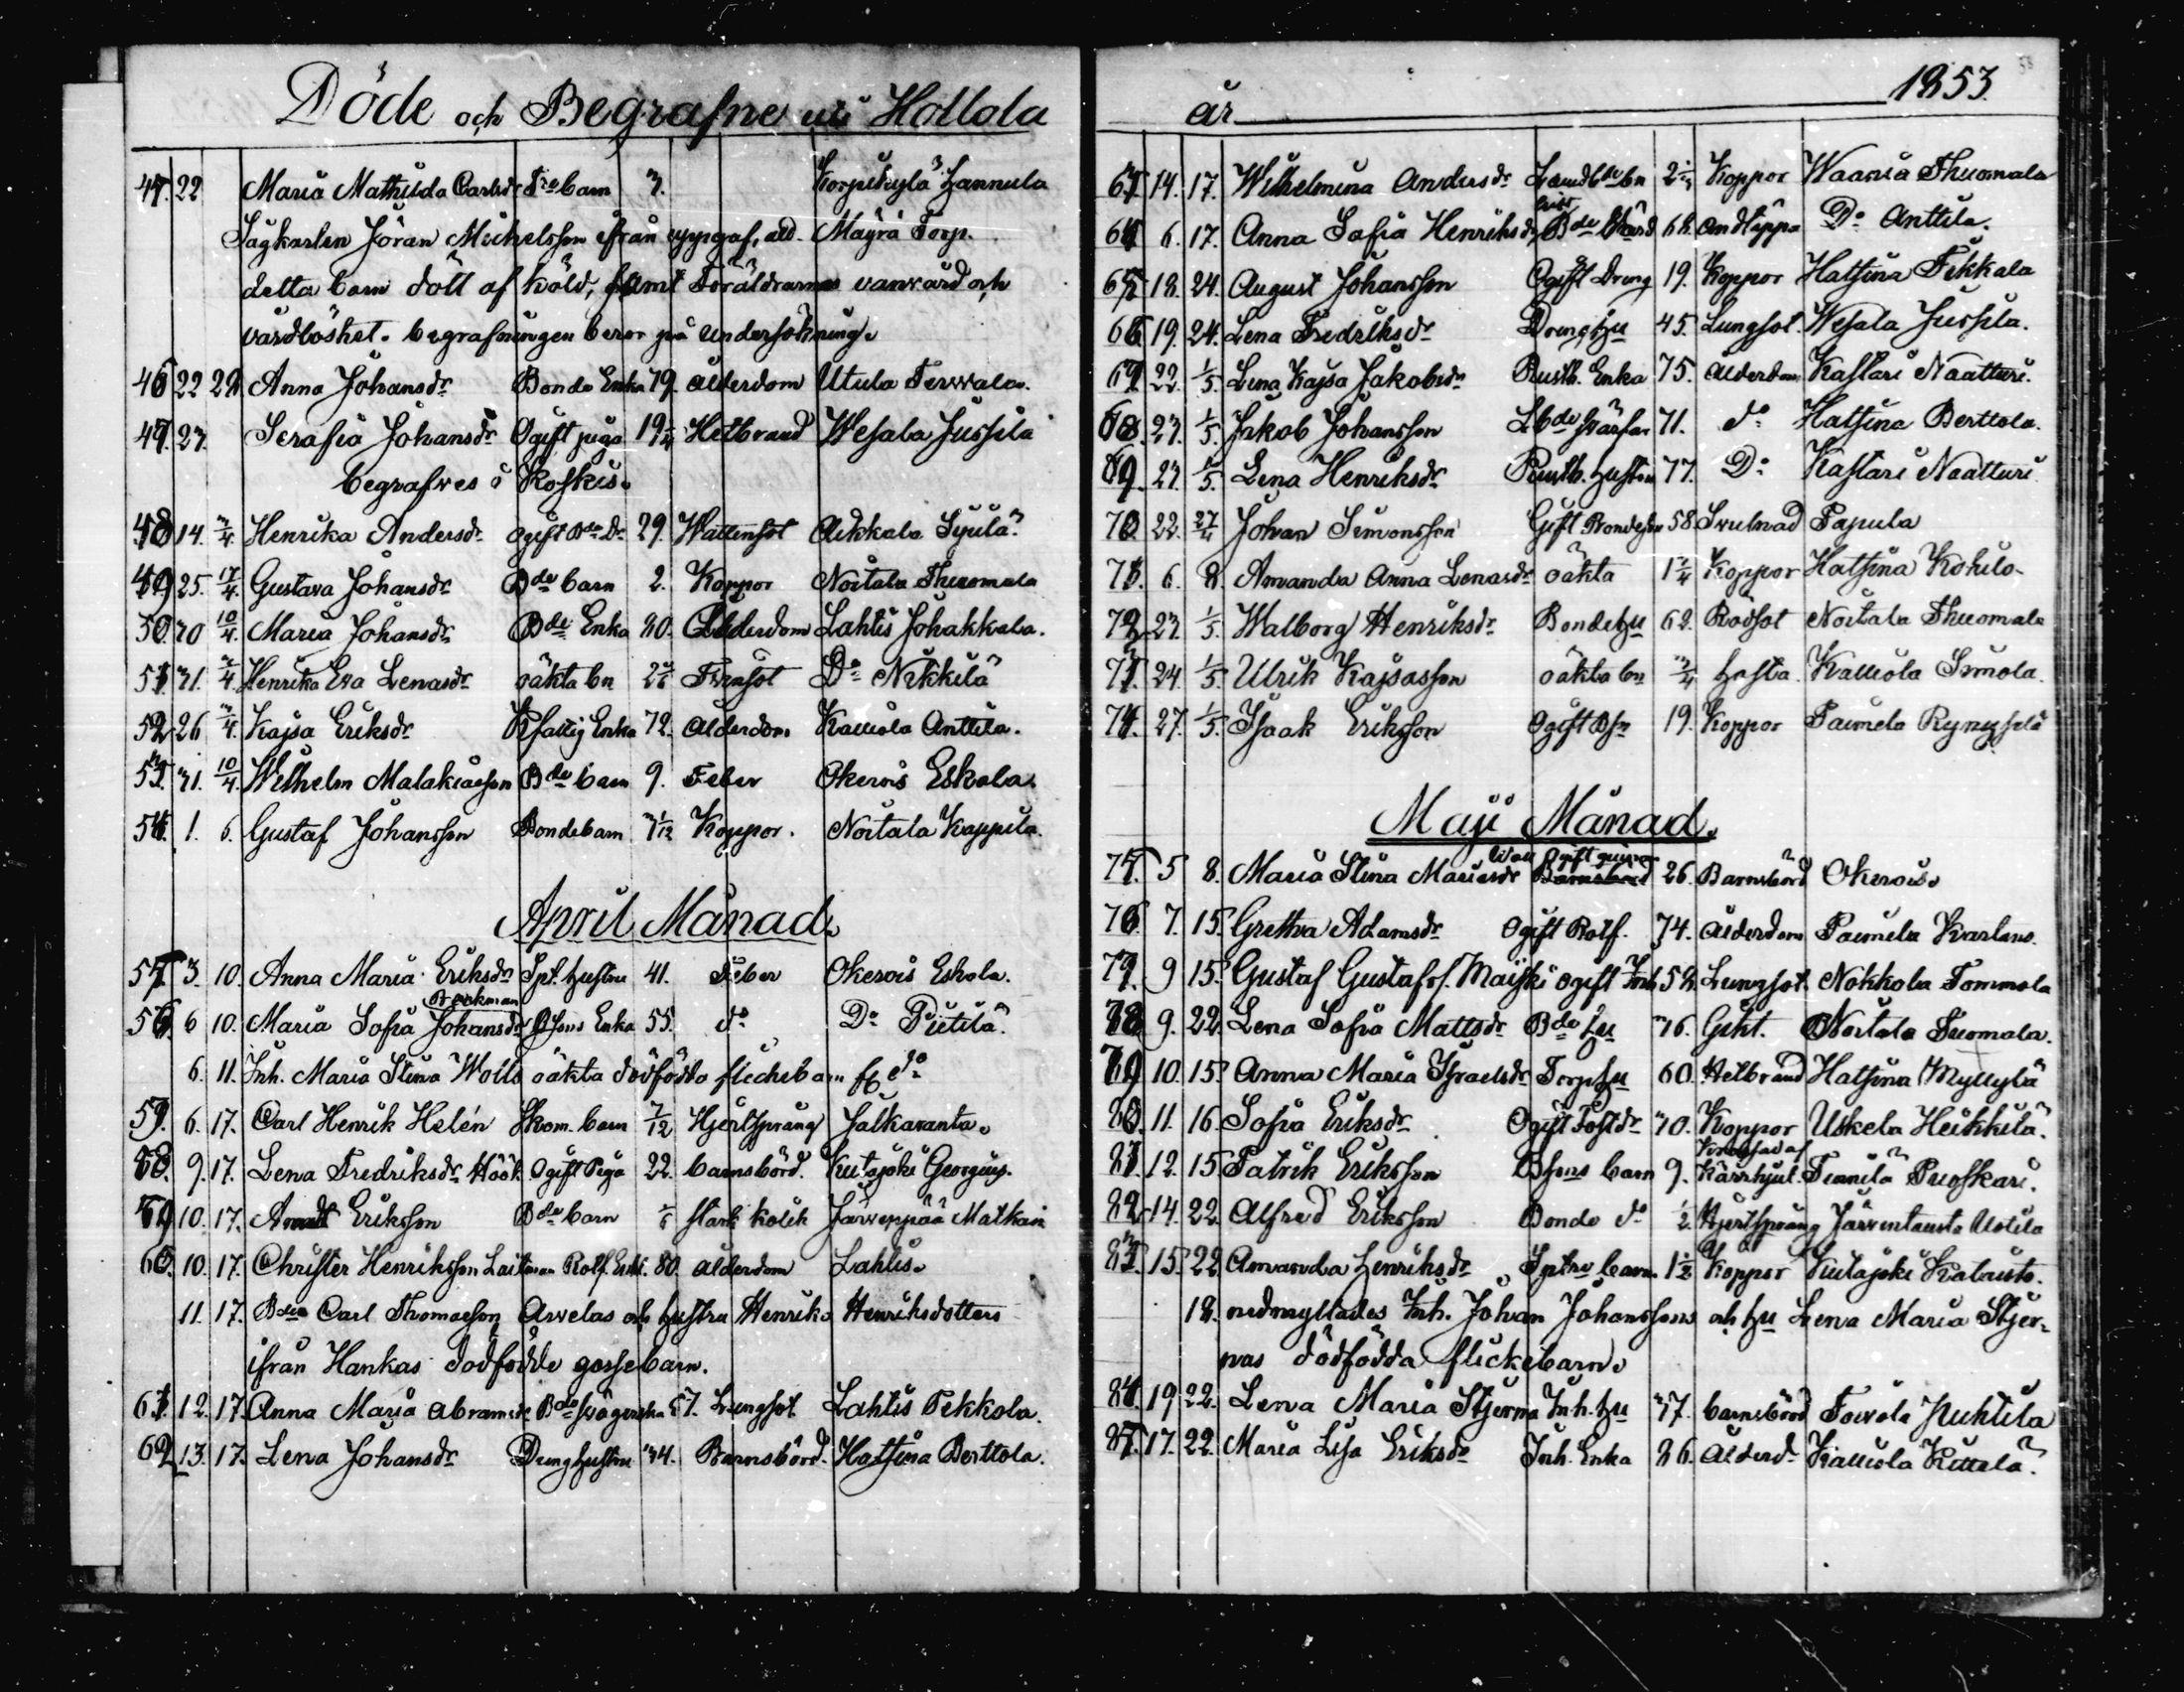 Döde och Begrafne uti Hollola
22 Maria Mathilda Carlsdr Tre barn 3. Korpikylä Hannula
Sågkarlen Jöran Michelsson ifrån uppgaf, att Mäyrä Torp.
detta barn dött af köld, samt Föräldrarnas vanvård och
vårdlöshet. begrafningen beror på undersökning.
46 22 29 Anna Johansdr Bonde Enka 79. ålderdom Utula Terwala.
47. 27. Serafia Johansdr Ogift piga 19 Hetbrand Wesala Jussila
begrafves i Koskis.
48 14. 3/4. Henrika Andersdr Ogift Bde Dr 29. Wattensot Aikkala Sipilä
49 25. 17/4. Gustava Johansdr Bde barn 2. Koppor Noitala Thuomala
50. 30 10/4. Maria Johansdr Bde Enka 80. Ålderdom Lahtis Johakkala.
31. 3/4. Henrika Eva Lenasdr oäkta bn 2 Trånsot Do Nikkilä
52 26 3/4. Kajsa Eriksdr Kfattig Enka 72. Ålderdom Kalliola Anttila.
53. 31. 10/4. Wilhelm Malakiasson Bde barn 9. Feber Okerois Eskola.
54. 1. 6. Gustaf Johansson Bondebarn 3 1/12 Koppor. Noitala Kappila.
April Månad.
3. 10. Anna Maria Eriksdr Spt. hustru 41. Feber Okerois Eskola.
Brakman
56. 6 10. Maria Sofia Johansdr Bsons Enka 55. do Do Pietilä
6. 11. Inh. Maria Stina Wolls oäkta dödfödda flickebarn do
6. 17. Carl Henrik Helén Skom. barn 7/12 Hjertsprång Jalkaranta.
58. 9. 17. Lena Fredriksdr Höök Ogift Piga 22. barnsbörd. Kutajoki Georgus.
59 10. 17. Eriksson Bde barn 1/6 stark kolik Järwenpää Matkai
60. 10. 17. Christer Henriksson Laitinen Rotf. Enkl. 80. ålderdom Lahtis.
11. 17. Bden Carl Thomasson Arvelas och hustru Henrika Henriksdotters
ifrån Hankas dödfödde gossebarn.
61. 12. 17. Anna Maria Abramsdr Bde svägerska 57. Lungsot Lahtis Pekkola.
62 13. 17. Lena Johansdr Drenghustru 34. Barnsbörd. Hatsina Berttola.
år 1853.
63. 14. 17. Wilhelmina Andersdr Landbde bn 2 1/3 Koppor Waania Thuomala
64 6. 17. Anna Sofia Henriksdr Bde 68. Andtäppa Do Anttila.
65 18. 24. August Johansson Ogift Dreng 19. Koppor Hatsina Pekkala
66 19. 24. Lena Fredriksdr Drenghu 45. Lungsot. Wesala Jussila.
67 22. 1/5. Lena Kajsa Jakobsdr Rusth. Enka 75. Ålderdom Kastari Naatturi.
68. 23. 1/5. Jakob Johansson Lbde svärfar 71. do Hatsina Berttola.
69. 27. 1/5. Lena Henriksdr Rusth. hustru 77. Do Kastari Naatturi.
70. 22. 27/4 Johan Simonsson Gift Bondeson 58. Svulnad Papula
71. 6. 8. Amanda Anna Lenasdr oäkta 1 3/4 Koppor Hatsina Kokilo
72 23 1/5. Walborg Henriksdr Bondehu 62. Rödsot Noitala Thuomala
73. 24. 1/5. Ulrik Kajsasson oäkta bn 3/4 hosta. Kalliola Simola.
74. 27. 1/5. Isaak Eriksson Ogift Bsn 19. Koppor Paimela
Maji Månad.
Ogift qvinna
5 8. Maria Stina Mariasdr 26. Barnsbörd Okerois.
76. 7. 15. Grettha Adamsdr Ogift Rotf. 74. ålderdom Paimela
77. 9 15. Gustaf Gustafss. Ogift Inh. 52. Lungsot. Nokkola Tommola
78 9. 22. Lena Sofia Mattsdr Bde hu 36. Gikt. Noitala Tuomala.
79 10. 15. Anna Maria Israelsdr Torphu 60. Hetbrand Hatsina Myllylä
80. 11. 16. Sofia Eriksdr Ogift Fostdr 30. Koppor Uskela Heikkilä.
Krossad af
81. 12. 15. Patrik Eriksson Bsons barn 9. Kärrhjul. Tiamilä Puoskari.
82 14. 22. Alfred Eriksson Bonde do 1/2. Hjertsprång Järventausta Uotila
83. 15. 22 Amanda Henriksdr barn 1 1/2 Koppor Kutajoki Kalaisto.
18. nedmyllades Inh. Johan Johanssons och hu Lena Maria Stjer-
nas dödfödda flickebarn.
84. 19. 22. Lena Maria Stjerna Inh. hu 37. barnsbörd Towola Juhtila
17. 22. Maria Lisa Eriksdr Inh. Enka 86. Ålderd. Kalliola Kittala.